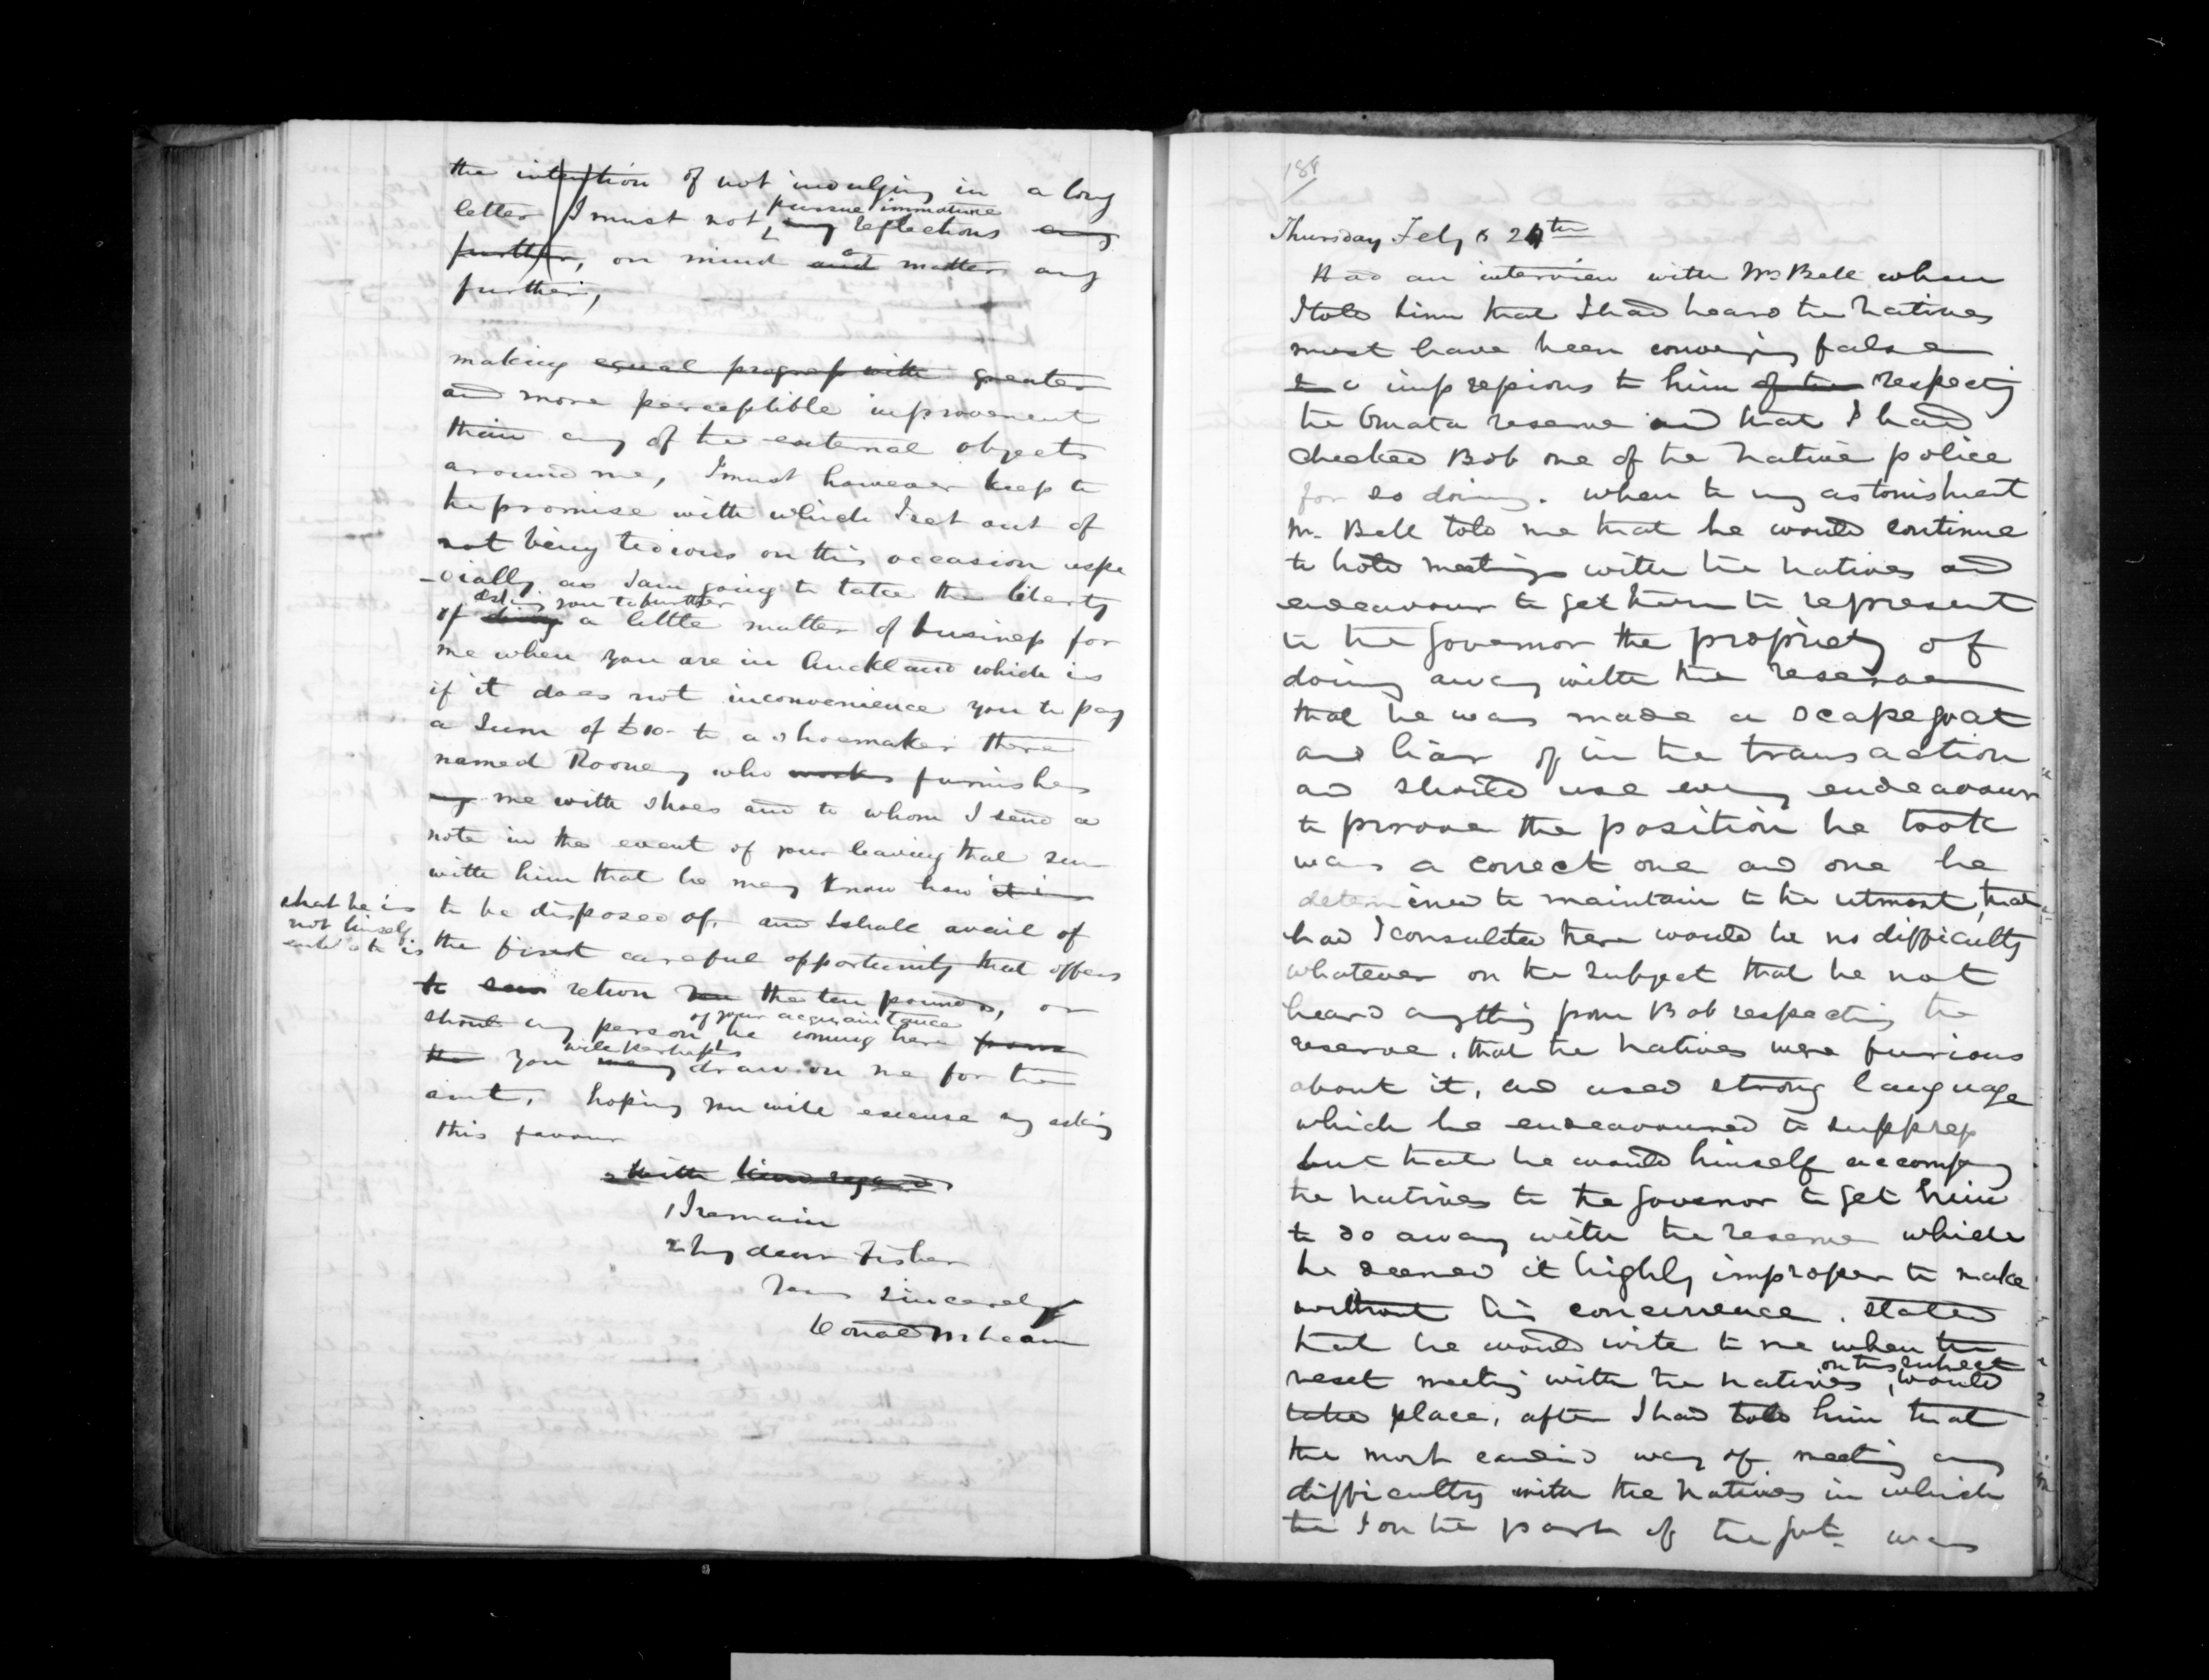 the intention of not indulging in a long
pursue immature
letter I must not my reflections any
further, on mind and matter any
further,
making equal progress with greater
and more perceptible improvement
than any of the external objects
around me, I must however keep to
the promise with which I set out of
not being tedious on this occasion espe
-cially as I am going to take the liberty
asking you to further
of doing a little matter of business for
me when you are in Auckland which is
if it does not inconvenience you to pay
a Sum of £10- to a shoemaker there
named Rooney who works furnishes
my me with shoes and to whom I send a
note in the event of your leaving that sum
with him that he may know how it is
to be disposed of. and I shall avail of
that he is
not himself
the first careful opportunity that offers
to return the ten pounds, or
of your acquaintance
should any person be coming here from
will perhaps
the you may draw on me for the
amt, hoping you will excuse my asking
this favour
2 With kind regards
1 I remain
2 My dear Fisher
Yours Sincerely
Donald McLean
188
Thursday Feby 24th
Had an interview with Mr Bell when
I told him that I had heard the natives
must have been conveying false
impressions to him of the respecting
the Omata reserve and that I had
checked Bob one of the native police
for so doing. when to my astonishment
Mr. Bell told me that he would continue
to hold meetings with the natives and
endeavour to get them to represent
to the Governor the propriety of
doing away with the reserve
that he was made a scapegoat
and liar of in the transaction
and should use every endeavour
to proove the position he took
was a correct one and one he
determined to maintain to the utmost, that
had I consulted there would be no difficulty
whatever on the subject that he not
heard anything from Bob respecting the
reserve, that the natives were furious
about it, and used strong language
which he endeavoured to suppress
but that he would himself accompany
the natives to the Govenor to get him
to do away with the reserve which
he deemed it highly improper to make
without his concurrence. stated
that he would write to me when the
on this subject
next meeting with the natives, would
take place, after I had told him that
the most candid way of meeting any
difficulty with the natives in which
the I on the part of the Govt. was